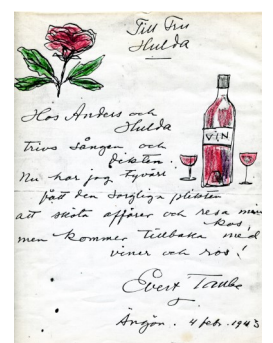 Till Fru
Hulda
Hos Anders och
Hulda
trivs sången och
dikten.
VIN
Nu har jag tyvärr
fått den sorgliga plikten
att sköta affärer och resa min
kos,
men kommer tillbaka med
viner och ros!
Evert Taube
Ängön. 4 febr. 1943